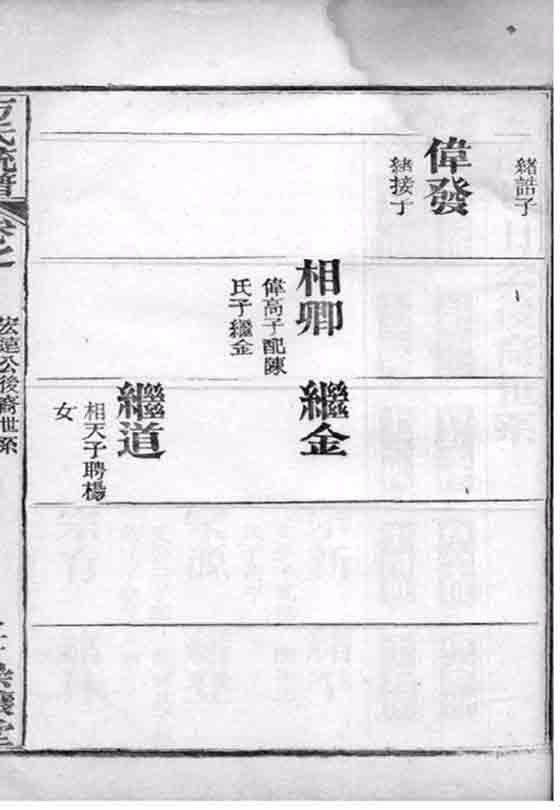 緒詰子
偉發
緒接子
相卿
偉高子配陳
氏子繼金
繼金
繼道
相天子聘楊
女
宏達公後裔世系